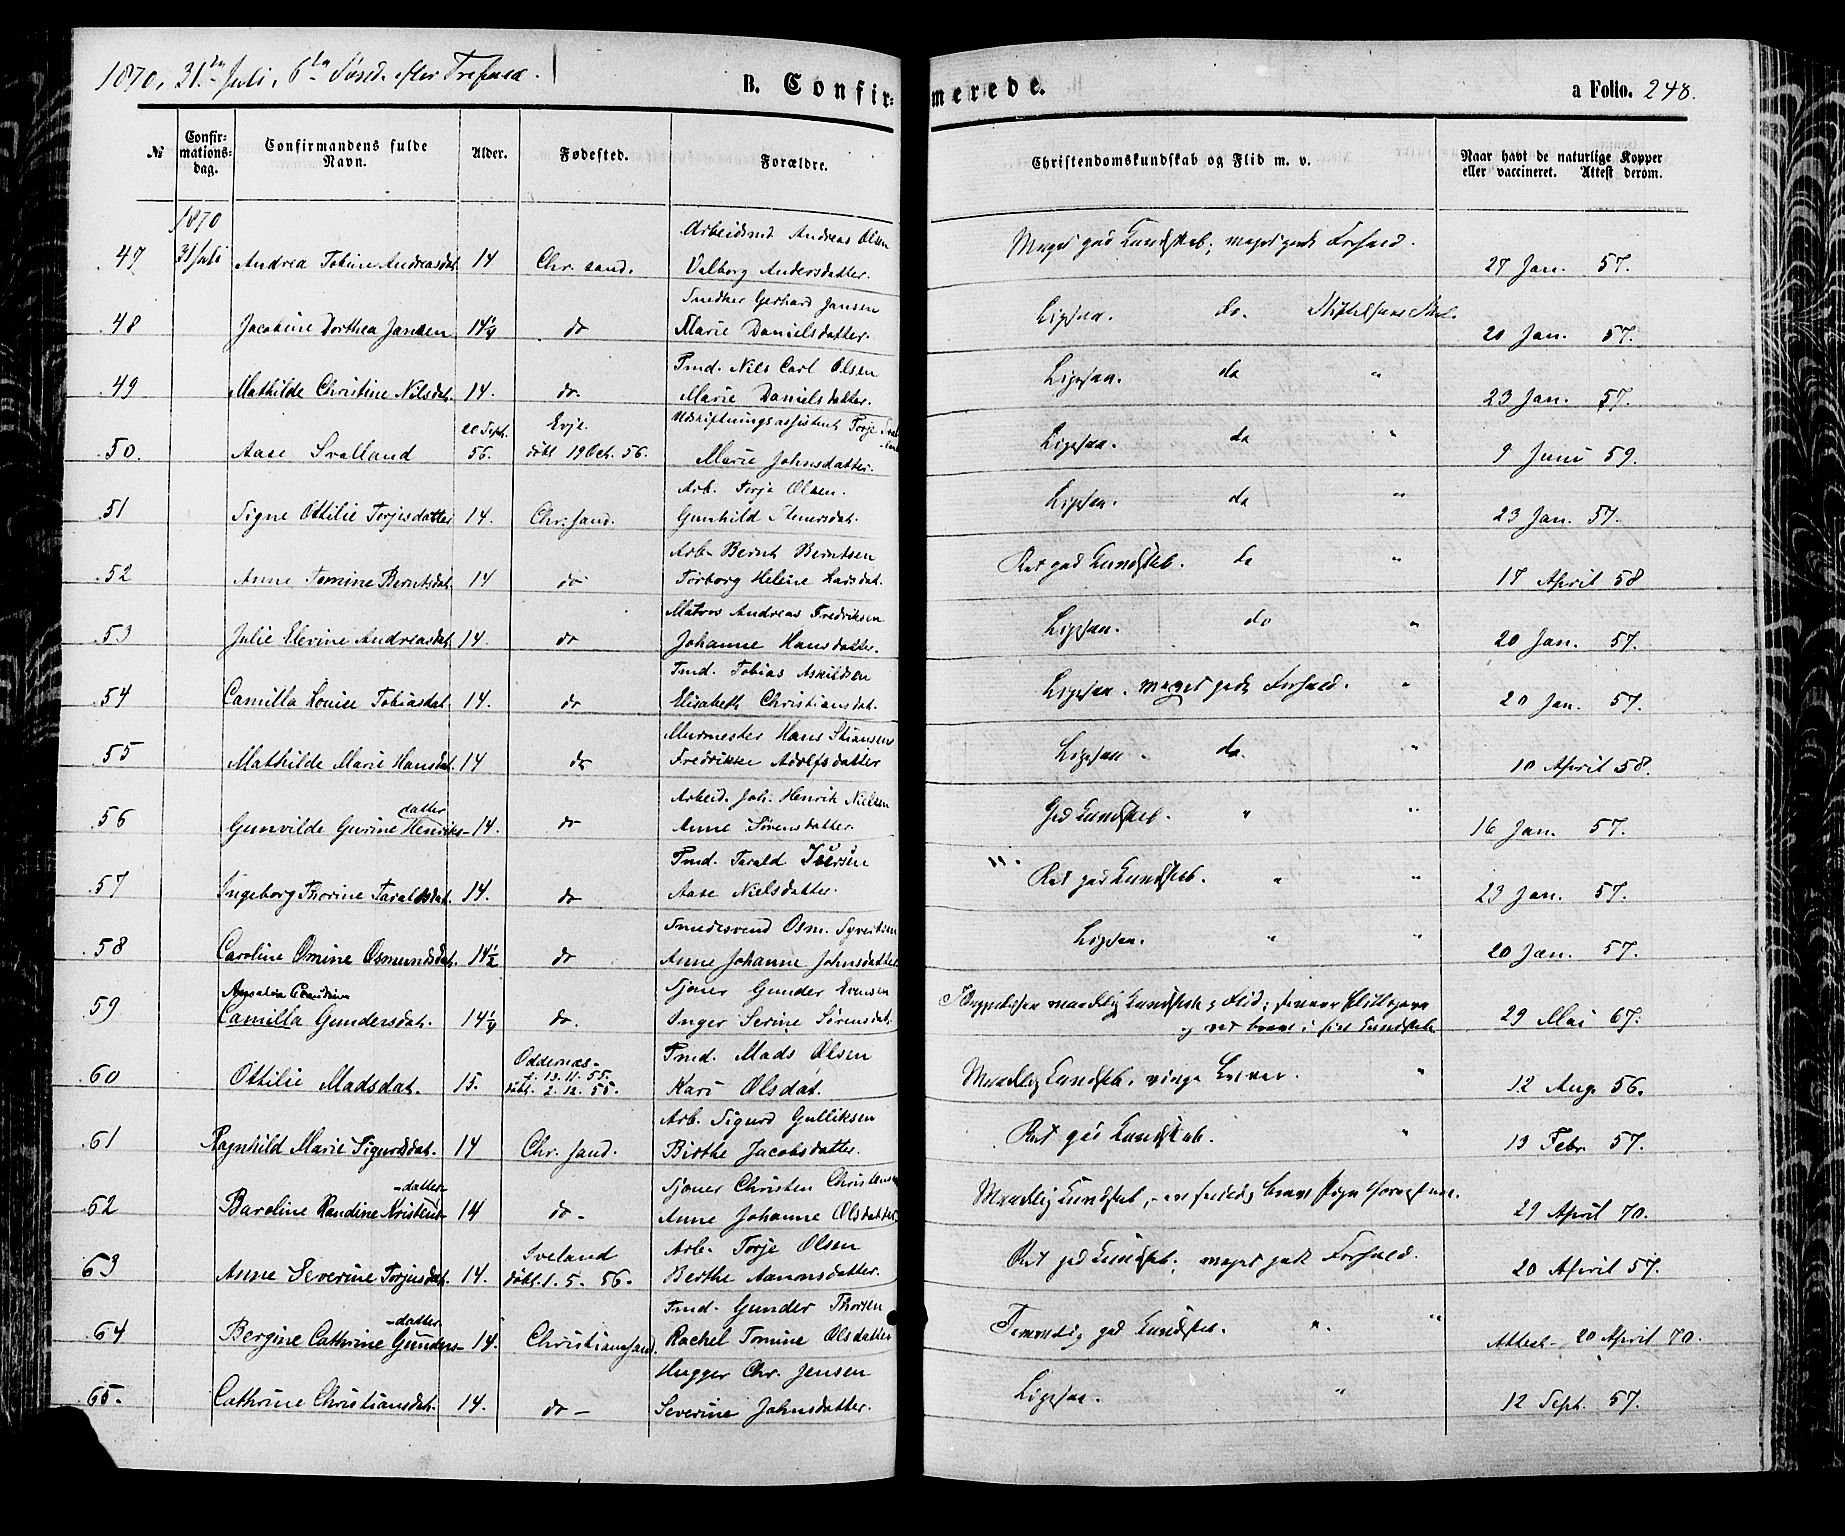 1870, 31te Juli, 6te Sønd. efter Trefold.
B. Confirmerede.
a Folio. 248.
№
Confirmationsdag.
Confirmandens fulde Navn.
Alder.
Fødested.
Forældre.
Christendomskundskab og Flid m. v.
Naar havt de naturlige Kopper eller vaccineret. Attest derom.
1870
47 31 Juli Andrea Tobine Andreasdat. 14 Chr. sand. Arbeidsmd Andreas Olsen
Valborg Andersdatter. Meget god Kundskab; meget godt Forhold. 27 Jan. 57.
48 Jacobine Dorthea Jansen 14¼ do Snedker Gerhard Jansen
Marie Danielsdatter. Ligesaa. do. 20 Jan. 57.
49 Mathilde Christine Nilsdat. 14. do. Tmd. Nils Carl Olsen
Marie Danielsdatter. Ligesaa. do " 23 Jan. 57.
50. Aase Svalland 20 Sept. 56. Evje. døbt 19 Oct. 56. Udskiftningsassistent Torje Svalland
Marie Johnsdatter. Ligesaa. do " 9 Juni 59.
51 Signe Ottilie Torjesdatter 14. Chr. sand. Arb. Torje Olsen.
Gunhild dat. Ligesaa. do " 23 Jan. 57.
52 Anne Tomine Berntsdat. 14 do Arb. Bernt Berntsen
Torborg Helene Larsdat. Ret god Kundskab. do " 17 April 58
53 Julie Elevine Andreasdat. 14. do Matros Andreas Fredriksen
Johanne Hansdatter. Ligesaa. do " 20 Jan. 57.
54 Camilla Louise Tobiasdat. 14. do Tmd. Tobias Askildsen
Elisabeth Christiansdat. Ligesaa. meget godt Forhold. " 20 Jan. 57.
55 Mathilde Marie Hansdat. 14 do Murmester Hans Stiansen
Fredrikke Adolfsdatter Ligesaa. do. " 10 April 58.
56 Gunvilde Gurine Henriksdatter 14. do Arbeid. Joh. Henrik Nielsen
Anne Sørensdatter. God Kundskab. " " 16 Jan. 57.
57 Ingeborg Thorine Taraldsdat. 14. do Tmd. Tarald Iversen
Aase Nielsdatter. Ret god Kundskab. " " 23 Jan. 57.
58 Caroline Omine Osmundsdat. 14½ do Smedesvend Osm. Syvertsen
Anne Johanne Johnsdatter Ligesaa. " " 20 Jan. 57.
59 Camilla Gundersdat. 14¼ do. Sjøer Gunder Evensen
Inger Serine Sørensdat. 29 Mai 67.
60 Ottilie Madsdat. 15. Oddernæs f. 13. 11. 55. døbt. 2. 12. 55. Tmd. Mads Olsen
Kari Olsdat. Maadelig Kundskab, ringe Evner. " 12 Aug. 56.
61 Ragnhild Marie Sigurdsdat. 14 Chr. sand. Arb. Sigurd Gulliksen
Birthe Jacobsdatter. Ret god Kundskab. " 13 Febr. 57.
62 Baroline Randine Kristensdatter 14 do - Sjøer Christen Christensen
Anne Johanne Olsdatter. Maadelig Kundskab, 29 April 70.
63 Anne Severine Torjusdat. 14. Sveland døbt. 1. 5. 56. Arb. Torje Olsen
Berthe Aanonsdatter. Ret god Kundskab; meget godt Forhold. 20 April 57.
64 Bergine Cathrine Gundersdatter 14. Christianssand. Tmd. Gunder Thorsen
Rachel Tomine Olsdatter Temmelig god Kundskab. " " Attest - 20 April 70.
65. Cathrine Christiansdat. 14. do - Hugger Chr. Jensen
Severine Johnsdatter. Ligesaa. " 12 Sept. 57.